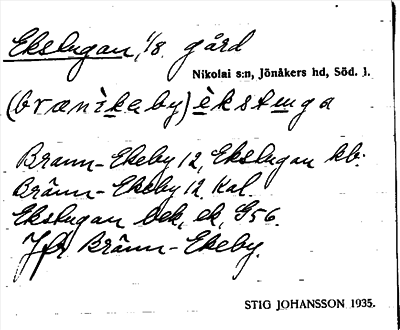 Ekslugan, 1/8 gård
Nikolai s:n, Jönåkers hd, Söd. l.
(brænìkeby) èkstuga
Brann-Ekeby 12, Ekslugan kb.
Bränn-Ekeby 12. Kal.
Ekslugan bek, ek, G56.
Jfr Bränn-Ekeby.
STIG JOHANSSON 1935.